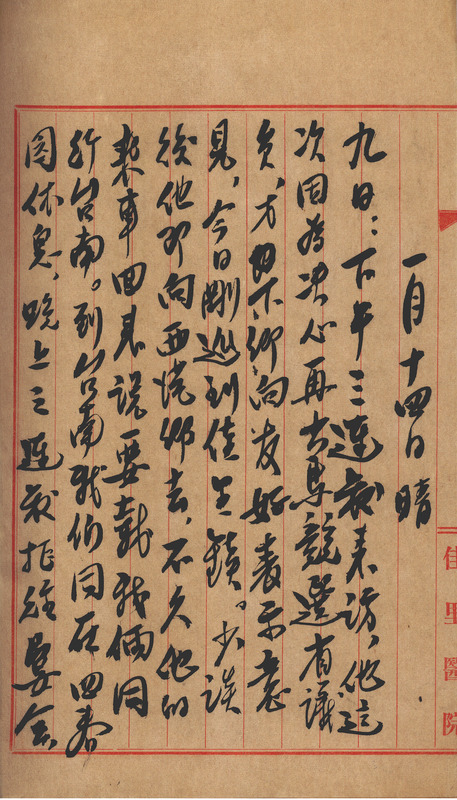 一月十四日 晴
九日：下午三連叔来訪，他這
次因為決心再出馬競選省議
員，下鄉向友好表示意
見，今日剛巡到佳里鎮。少談
後他即向西港鄉去，不久他的
乘車回来說要載我倆同
行台南。到台南我們同在四春
園休息，晚上三連叔招宴会
佳里醫院